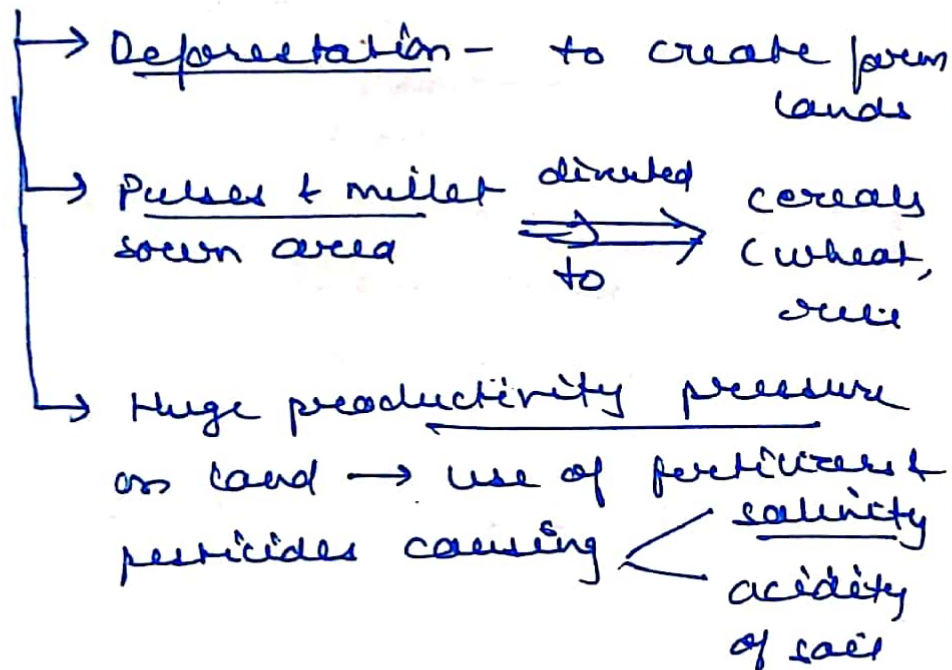 → Deforestation - to create farm
lands
→ Pulses & millet diverted cereals
sown area to (wheat,
rice
→ Huge productivity pressure
on land → use of fertilizers &
pesticides causing salinity
acidity
of soil